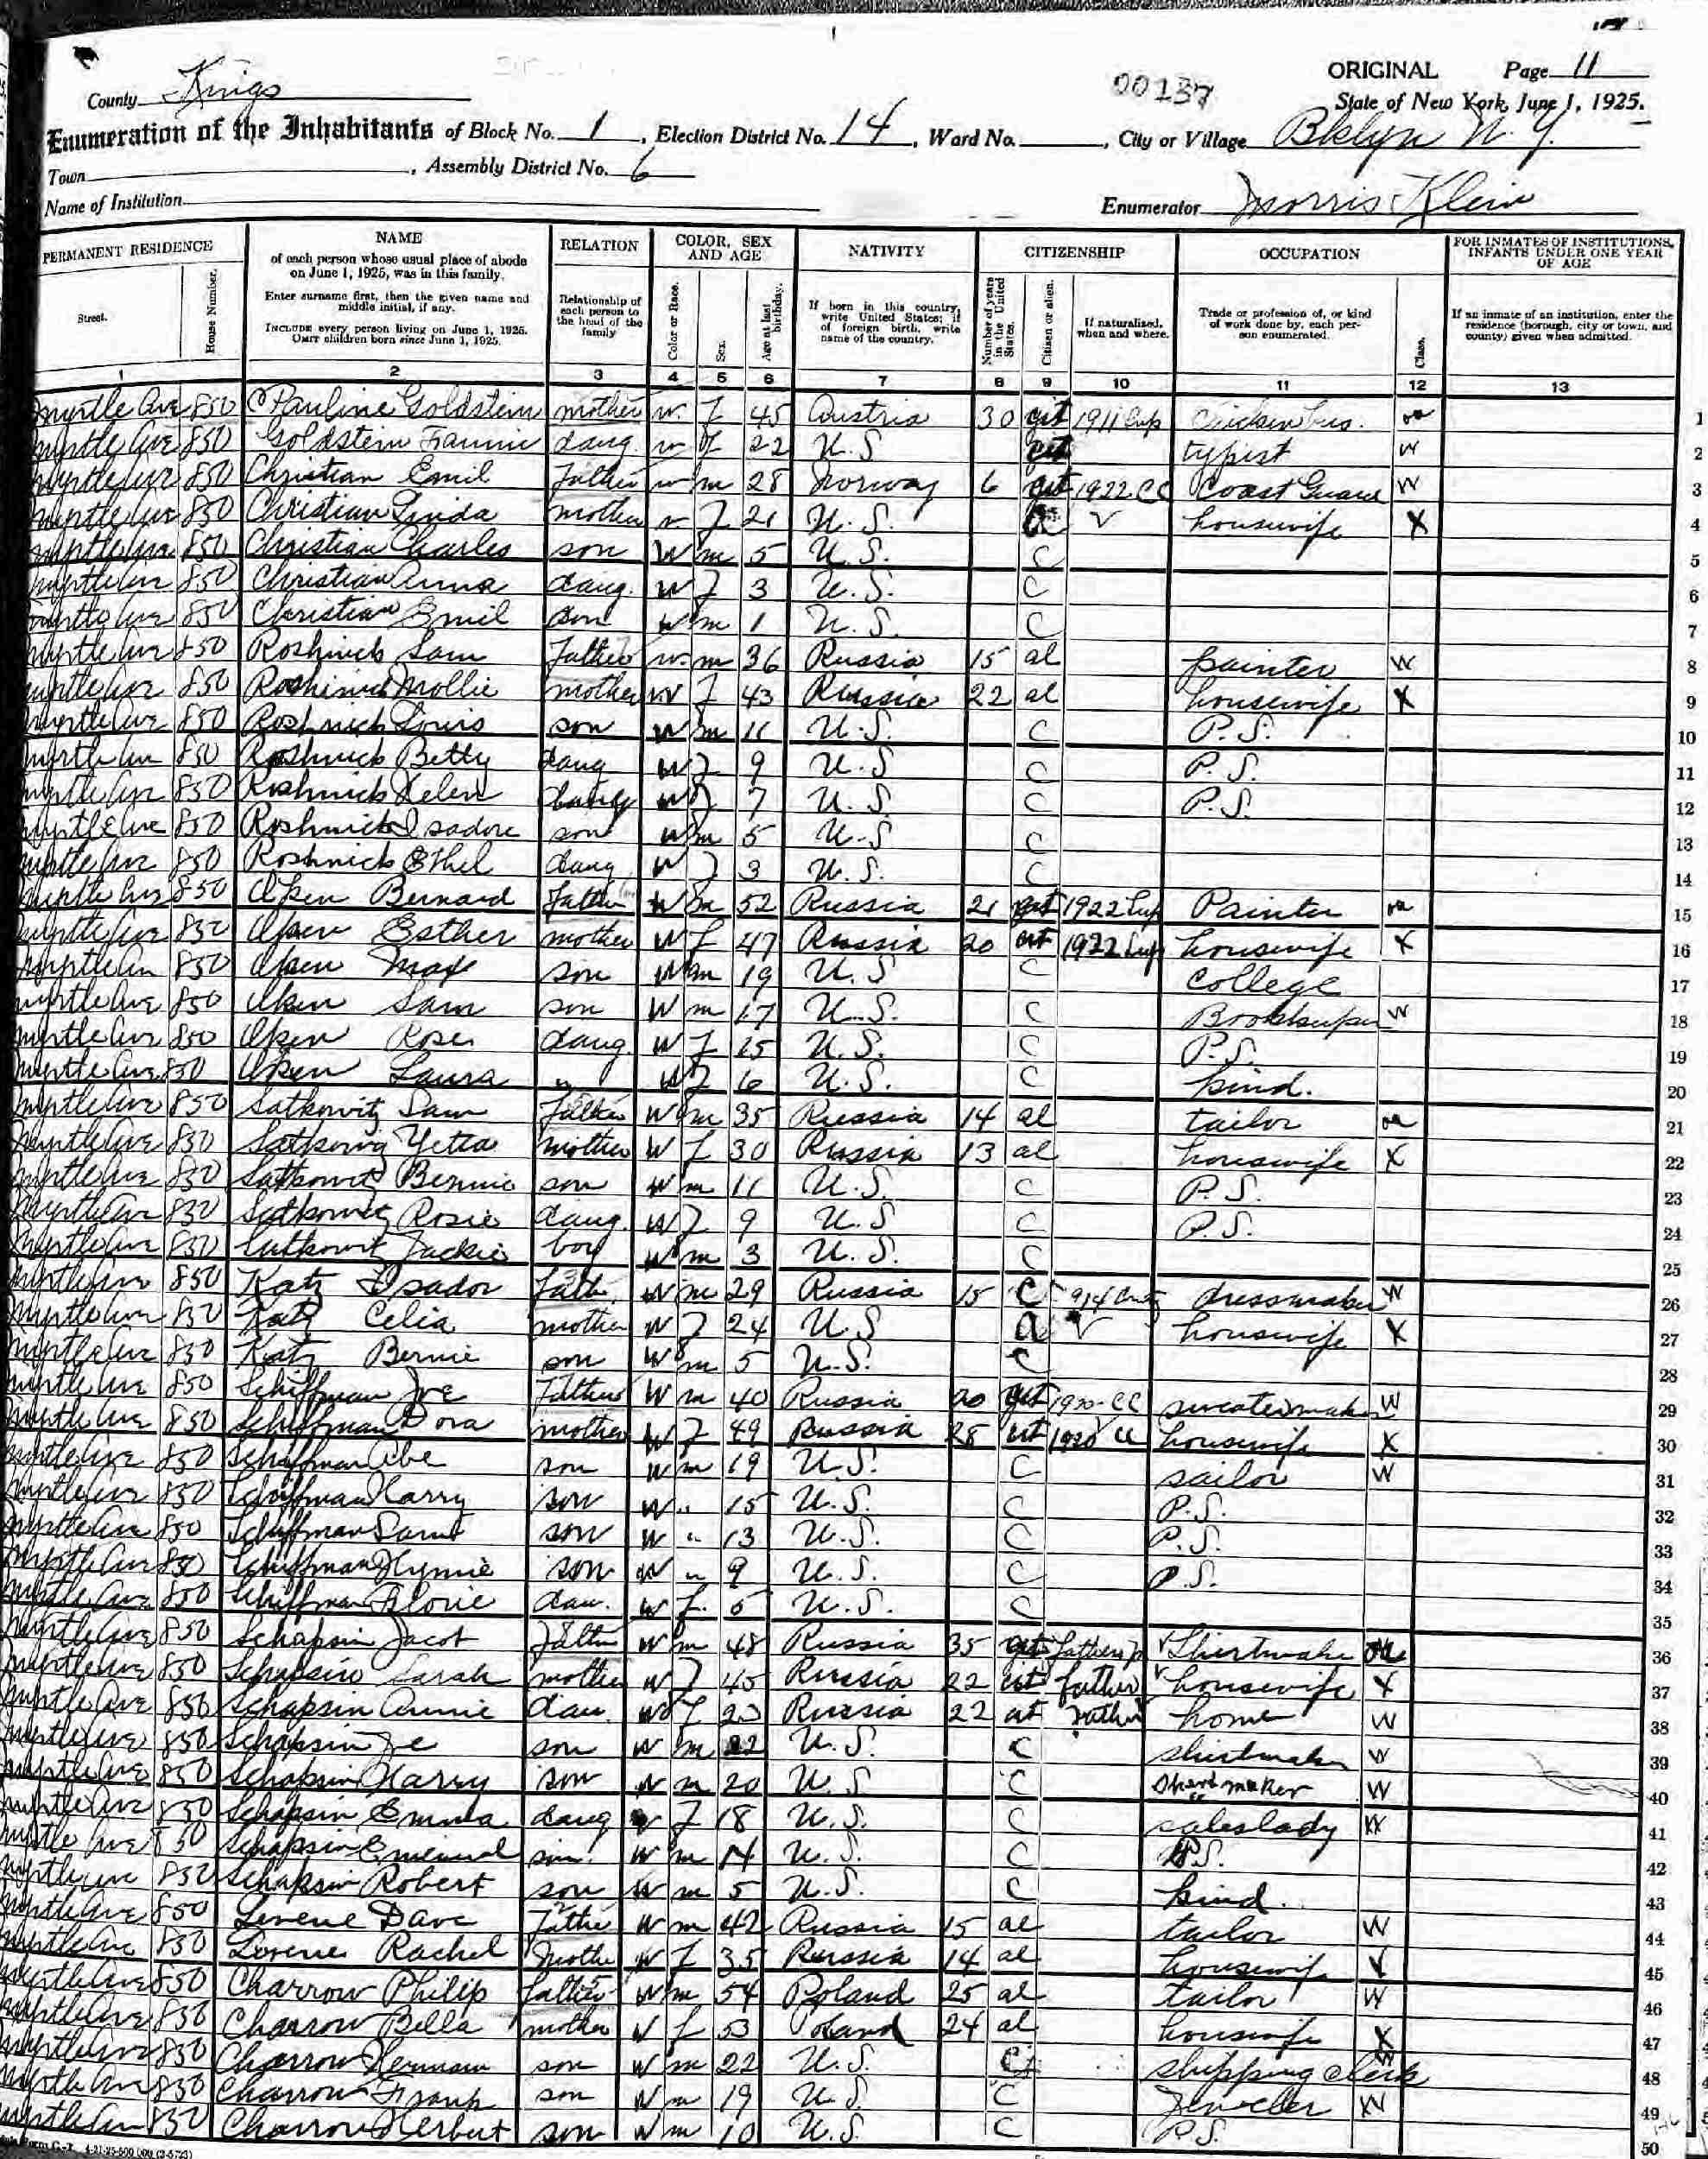 ORIGINAL Page 11
County Kings 00137 State of New York, June 1, 1925.
Enumeration of the Inhabitants of Block No. 1, Election District No. 14, Ward No. , City or Village Bklyn N.Y.
Town , Assembly District No. 6
Name of Institution Enumerator Morris Klein
PERMANENT RESIDENCE NAME RELATION COLOR, SEX AND AGE NATIVITY CITIZENSHIP OCCUPATION FOR INMATES OF INSTITUTIONS, INFANTS UNDER ONE YEAR OF AGE
Street. House Number. of each person whose usual place of abode on June 1, 1925, was in this family. Enter surname first, then the given name and middle initial, if any. INCLUDE every person living on June 1, 1925. OMIT children born since June 1, 1925. Relationship of each person to the head of the family Color or Race. Sex. Age at last birthday. If born in this country, write United States; if of foreign birth, write name of the country. Number of years in the United States. Citizen or alien. If naturalized, when and where. Trade or profession of, or kind of work done by, each person enumerated. Class. If an inmate of an institution, enter the residence (borough, city or town, and county) given when admitted.
1 2 3 4 5 6 7 8 9 10 11 12 13
Myrtle Ave 850 Pauline Goldstein mother w F 45 Austria 30 cit 1911 Sup 1
Myrtle Ave 850 Goldstein Fannie daug. w F 22 U.S cit typist W 2
Myrtle Ave 850 Christian Emil Father w m 28 Norway 6 cit 1922 CC Coast Guard W 3
Myrtle Ave 850 Christian Linda mother w F 21 U.S. a V housewife X 4
Myrtle Ave 850 Christian Charles son W m 5 U.S. C 5
Myrtle Ave 850 Christian Anna daug. W F 3 U.S. C 6
Myrtle Ave 850 Christian Emil son W m 1 U.S. C 7
Myrtle Ave 850 Roshnick Sam Father w m 36 Russia 15 al painter W 8
Myrtle Ave 850 Roshnick Mollie mother W F 43 Russia 22 al housewife X 9
Myrtle Ave 850 Roshnick Louis son W m 11 U.S. C P.S. 10
Myrtle Ave 850 Roshnick Betty daug W F 9 U.S C P.S. 11
Myrtle Ave 850 Roshnick Helen daug W F 7 U.S. C P.S. 12
Myrtle Ave 850 Roshnick Isadore son W m 5 U.S C 13
Myrtle Ave 850 Roshnick Ethel daug W F 3 U.S. C 14
Myrtle Ave 850 Bernard Father W m 52 Russia 21 cit 1922 Sup Painter oa 15
Myrtle Ave 850 Esther mother W F 47 Russia 20 cit 1922 Sup housewife X 16
Myrtle Ave 850 Max son W m 19 U.S C College 17
Myrtle Ave 850 Sam son W m 17 U.S. C Bookkeeper W 18
Myrtle Ave 850 Rose daug. W F 15 U.S. C P.S. 19
Myrtle Ave 850 Laura " W F 6 U.S. C kind. 20
Myrtle Ave 850 Satkowitz Sam Father W m 35 Russia 14 al tailor oa 21
Myrtle Ave 850 Satkowitz Yetta mother W F 30 Russia 13 al housewife X 22
Myrtle Ave 850 Satkowitz Bennie son W m 11 U.S. C P.S. 23
Myrtle Ave 850 Satkowitz Rosie daug. W F 9 U.S C P.S. 24
Myrtle Ave 850 Satkowitz Jackie boy W m 3 U.S. C 25
Myrtle Ave 850 Katz Isador Fath. W m 29 Russia 15 C 1914 dressmaker W 26
Myrtle Ave 850 Katz Celia mother W F 24 U.S a V housewife X 27
Myrtle Ave 850 Katz Bernie son W m 5 U.S. C 28
Myrtle Ave 850 Schiffman Joe Father W m 40 Russia 20 cit 1920 CC sweatermaker W 29
Myrtle Ave 850 Schiffman Dora mother W F 49 Russia 28 cit 1920 CC housewife X 30
Myrtle Ave 850 Schiffman Abe son W m 19 U.S. C sailor W 31
Myrtle Ave 850 Schiffman Harry son W " 15 U.S. C P.S. 32
Myrtle Ave 850 Schiffman son W " 13 U.S. C P.S. 33
Myrtle Ave 850 Schiffman Hymie son W " 9 U.S. C P.S. 34
Myrtle Ave 850 Schiffman Florie dau. W F. 5 U.S. C 35
Myrtle Ave 850 Schapsin Jacob Father W m 48 Russia 35 cit fathers Shirtmaker oa 36
Myrtle Ave 850 Schapsin Sarah mother W F 45 Russia 22 cit father housewife X 37
Myrtle Ave 850 Schapsin Annie dau. W F 23 Russia 22 cit father home W 38
Myrtle Ave 850 Schapsin Joe son W m 22 U.S. C shirtmaker W 39
Myrtle Ave 850 Schapsin Harry son W m 20 U.S C Shirtmaker W 40
Myrtle Ave 850 Schapsin Emma daug W F 18 U.S. C saleslady W 41
Myrtle Ave 850 Schapsin son W m 14 U.S. C P.S. 42
Myrtle Ave 850 Schapsin Robert son W m 5 U.S. C kind. 43
Myrtle Ave 850 Levene Dave Father W m 42 Russia 15 al tailor W 44
Myrtle Ave 850 Levene Rachel Mother W F 35 Russia 14 al housewife X 45
Myrtle Ave 850 Charrow Philip father W m 54 Poland 25 al tailor W 46
Myrtle Ave 850 Charrow Bella mother W F 53 Poland 24 al housewife X 47
Myrtle Ave 850 Charrow Herman son W m 22 U.S. C shipping clerk W 48
Myrtle Ave 850 Charrow Frank son W m 19 U.S C Jeweler W 49
Myrtle Ave 850 Charrow Herbert son W m 10 U.S. C P.S. 50